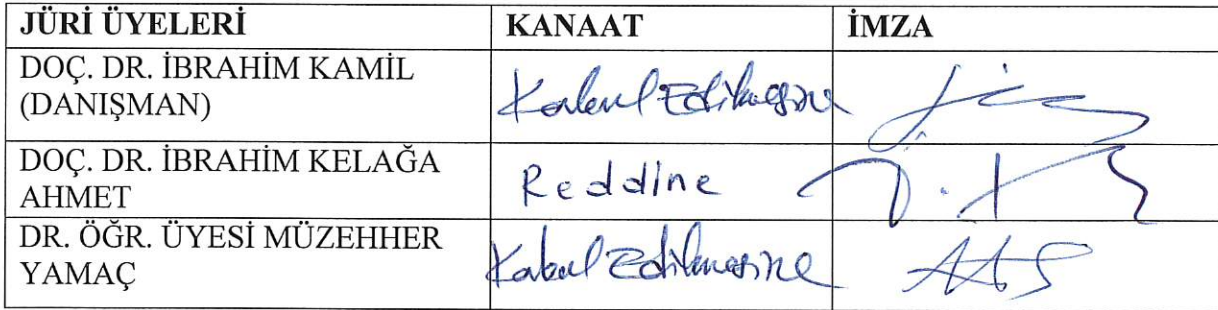 JÜRİ ÜYELERİ KANAAT İMZA
DOÇ. DR. İBRAHİM KAMİL
(DANIŞMAN) Kabul Edilmesine
DOÇ. DR. İBRAHİM KELAĞA
AHMET Reddine
DR. ÖĞR. ÜYESİ MÜZEHHER
YAMAÇ Kabul Edilmesine